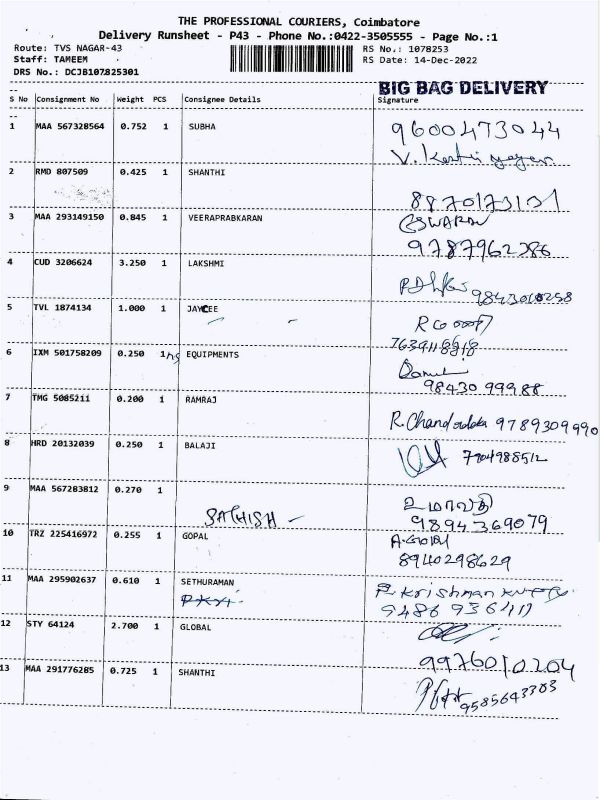 THE PROFESSIONAL COURIERS, Coimbatore
Delivery Runsheet - P43 - Phone No.:0422-3505555 - Page No.:1
Route: TVS NAGAR-43 RS No.: 1078253
Staff: TAMEEM RS Date: 14-Dec-2022
DRS No.: DCJB107825301
BIG BAG DELIVERY
S No Consignment No Weight PCS Consignee Details Signature
1 MAA 567328564 0.752 1 SUBHA 9600473044
V.
2 RMD 807509 0.425 1 SHANTHI
8870173131
3 MAA 293149150 0.845 1 VEERAPRABKARAN ESWARAN
9787962386
4 CUD 3206624 3.250 1 LAKSHMI
9843010258
5 TVL 1874134 1.000 1 JAYCEE
7639118818
6 IXM 501758209 0.250 1 EQUIPMENTS
98430 99988
7 TMG 5085211 0.200 1 RAMRAJ
R. 9789309990
8 HRD 20132039 0.250 1 BALAJI 7904988512
9 MAA 567283812 0.270 1 உமாவதி
SATHISH 9894369079
10 TRZ 225416972 0.255 1 GOPAL A.Gopal
8940298629
11 MAA 295902637 0.610 1 SETHURAMAN
9486 936411
12 STY 64124 2.700 1 GLOBAL
9976010204
13 MAA 291776285 0.725 1 SHANTHI
9585643303